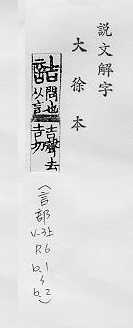 説文解字
大徐本
詰
問也
从言
吉聲
去
吉切
(言部
V.3上
P.6
b.1
b.2)